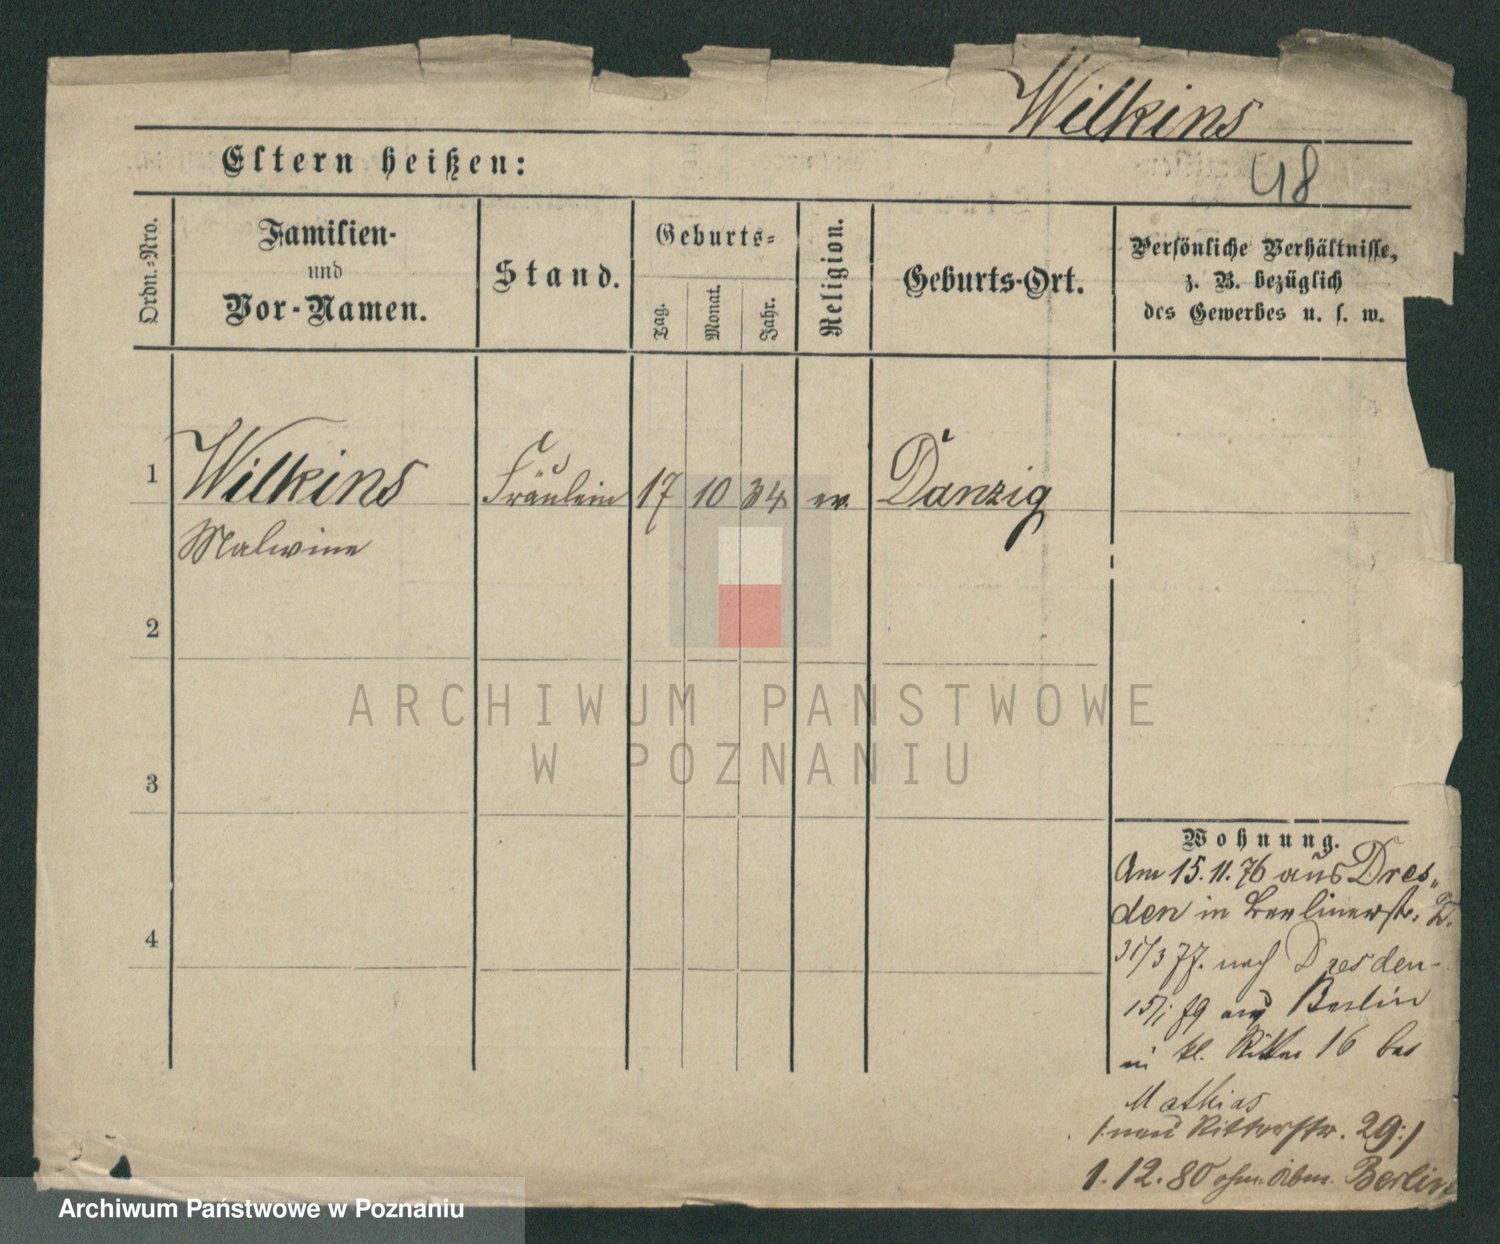 Wilkins
48
Eltern heißen:
Ordn.-Nro.
Familien-
und
Vor-Namen.
Stand.
Geburts-
Tag.
Monat.
Jahr.
Religion.
Geburts-Ort.
Persönliche Verhältnisse,
z. B. bezüglich
des Gewerbes u. s. w.
1
Wilkins Fräulein 17 10 34 ev. Danzig
Malwine
2
3
4
Wohnung.
Am 15.11.76 aus Dres-
den in Berlinerstr. 2.
31/3 77. nach Dresden-
15/1 79 aus Berlin
in kl. Ritter 16 bei
Mathias
/: neu Ritterstr. 29 :/
1.12.80 Berlin
ARCHIWUM PAŃSTWOWE
W POZNANIU
Archiwum Państwowe w Poznaniu